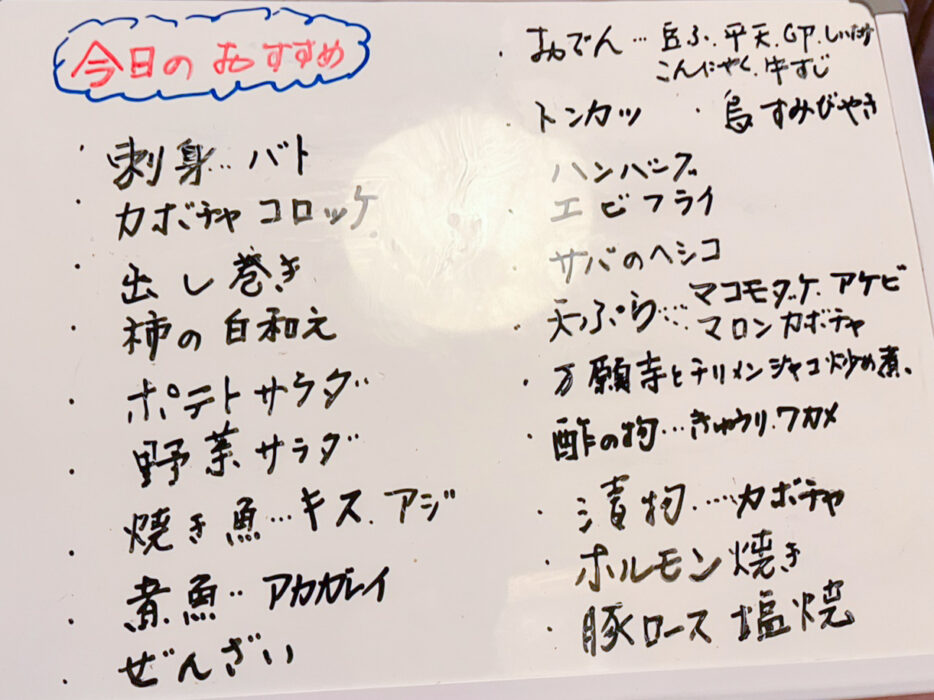 今日のおすすめ
・刺身‥バト
・カボチャコロッケ
・出し巻き
・柿の白和え
・ポテトサラダ
・野菜サラダ
・焼き魚…キス.アジ
・煮魚‥アカガレイ
・ぜんざい
・おでん…豆ふ.平天.GP.しいたけ
こんにゃく.牛すじ
・トンカツ ・鳥すみびやき
ハンバーグ
・エビフライ
・サバのヘシコ
・天ぷら…マコモダケ.アケビ
マロンカボチャ
・万願寺とチリメンジャコ炒め煮、
・酢の物…きゅうり.ワカメ
・漬物‥‥カボチャ
・ホルモン焼き
・豚ロース塩焼